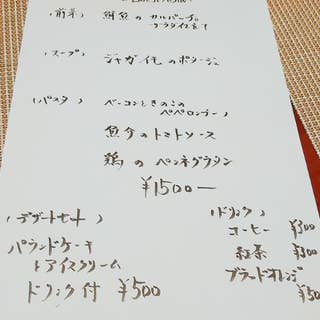 (前菜) 鯖魚の カルパッチョ
サラダ仕立て
(スープ) ジャガ芋のポタージュ
(パスタ) ベーコンときのこの
ペペロンチーノ
魚介のトマトソース
鶏の ペンネグラタン
¥1500ー
(デザートセット)
パウンドケーキ
とアイスクリーム
ドリンク付 ¥500
(ドリンク)
コーヒー ¥300
紅茶 ¥300
ブラッドオレンジ
¥50